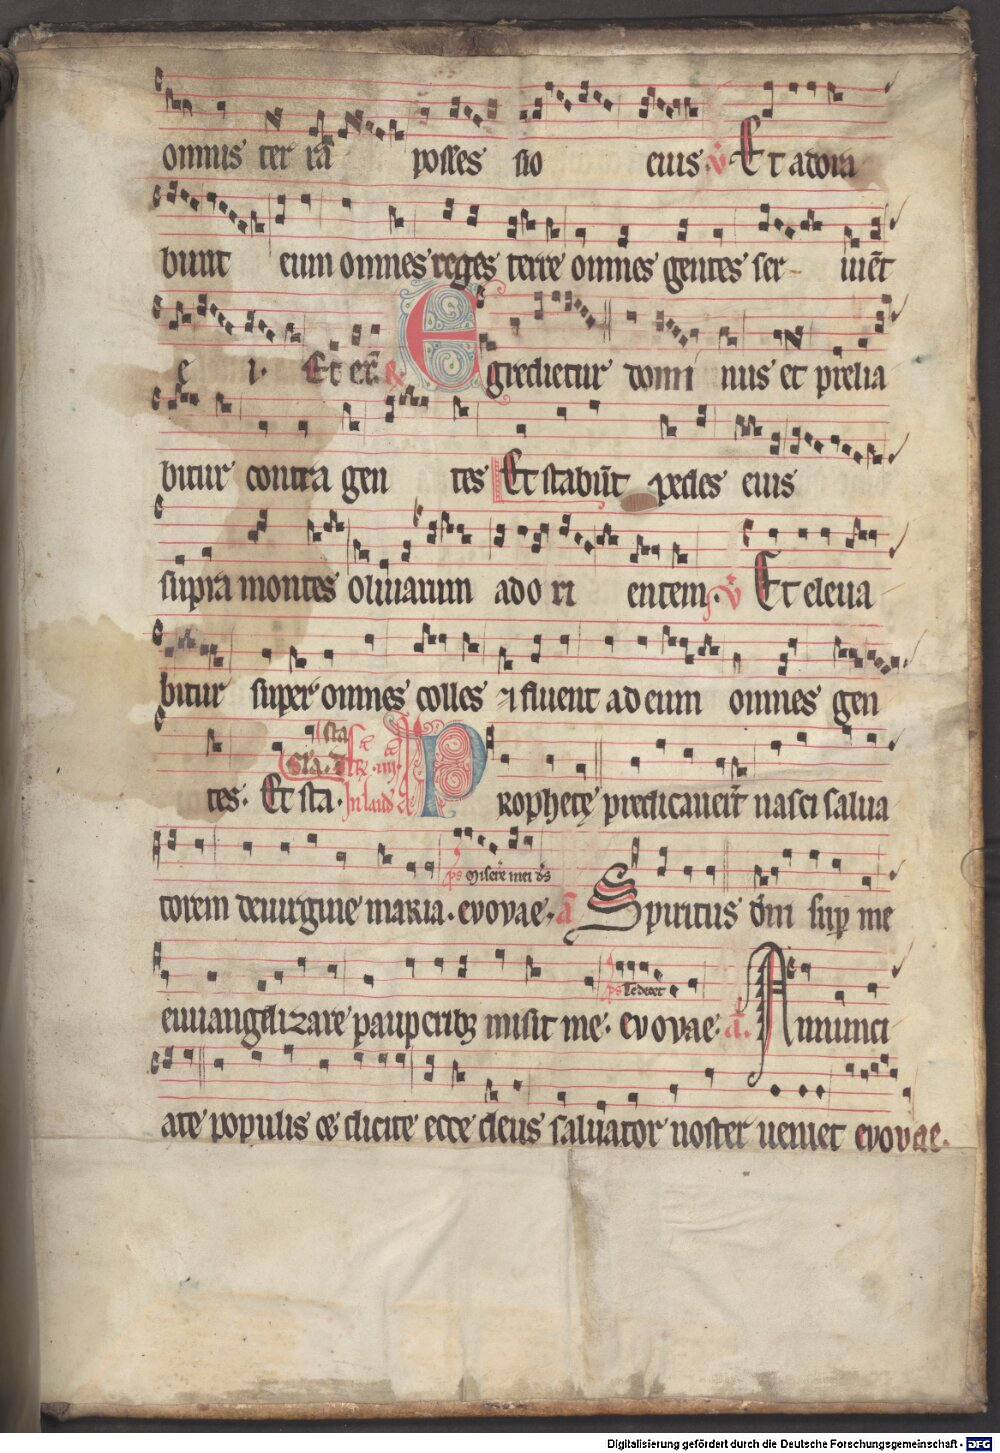 omnis ter rā posses sio eius. v̄ Et adora
bunt eum omnes reges terre omnes gentes ser uiēt
e i. Et er̄. R Egredietur domi nus et prelia
bitur contra gen tes Et stabūt pedes eius
supra montes oliuarum ad o ri entem. v̄ Et eleua
bitur super omnes colles 7 fluent ad eum omnes gen
sta
tes. Et sta. In laud Prophetę predicauer̄t nasci salua
ps Misere mei ds
torem de uirgine maria. evovae. ā Spiritus dn̄i sup̄ me
ps Te decet
euuangelizare pauperibꝫ misit me. evovae. ā. Annunci
ate populis et dicite ecce deus saluator noster ueniet evovae.
Digitalisierung gefördert durch die Deutsche Forschungsgemeinschaft - DFG